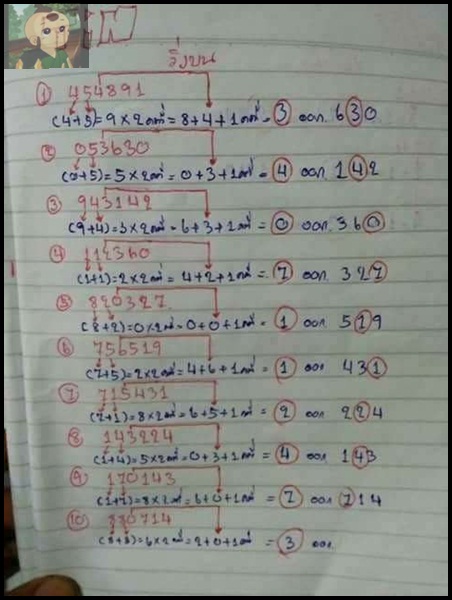 วิ่งบน
① 454891
(4+5)=9×2คที่=8+4+1คที่=3 ออก 630
② 053630
(0+5)=5×2คที่=0+3+1คที่=4 ออก 142
③ 943142
(9+4)=3×2คที่=6+3+1คที่=0 ออก 360
④ 112360
(1+1)=2×2คที่=4+2+1คที่=7 ออก 327
⑤ 820327
(8+2)=0×2คที่=0+0+1คที่=1 ออก 519
⑥ 756519
(7+5)=2×2คที่=4+6+1คที่=1 ออก 431
⑦ 715431
(7+1)=8×2คที่=6+5+1คที่=2 ออก 224
⑧ 143224
(1+4)=5×2คที่=0+3+1คที่=4 ออก 143
⑨ 170143
(1+7)=8×2คที่=6+0+1คที่=7 ออก 714
⑩ 880714
(8+8)=6×2คที่=2+0+1คที่=3 ออก